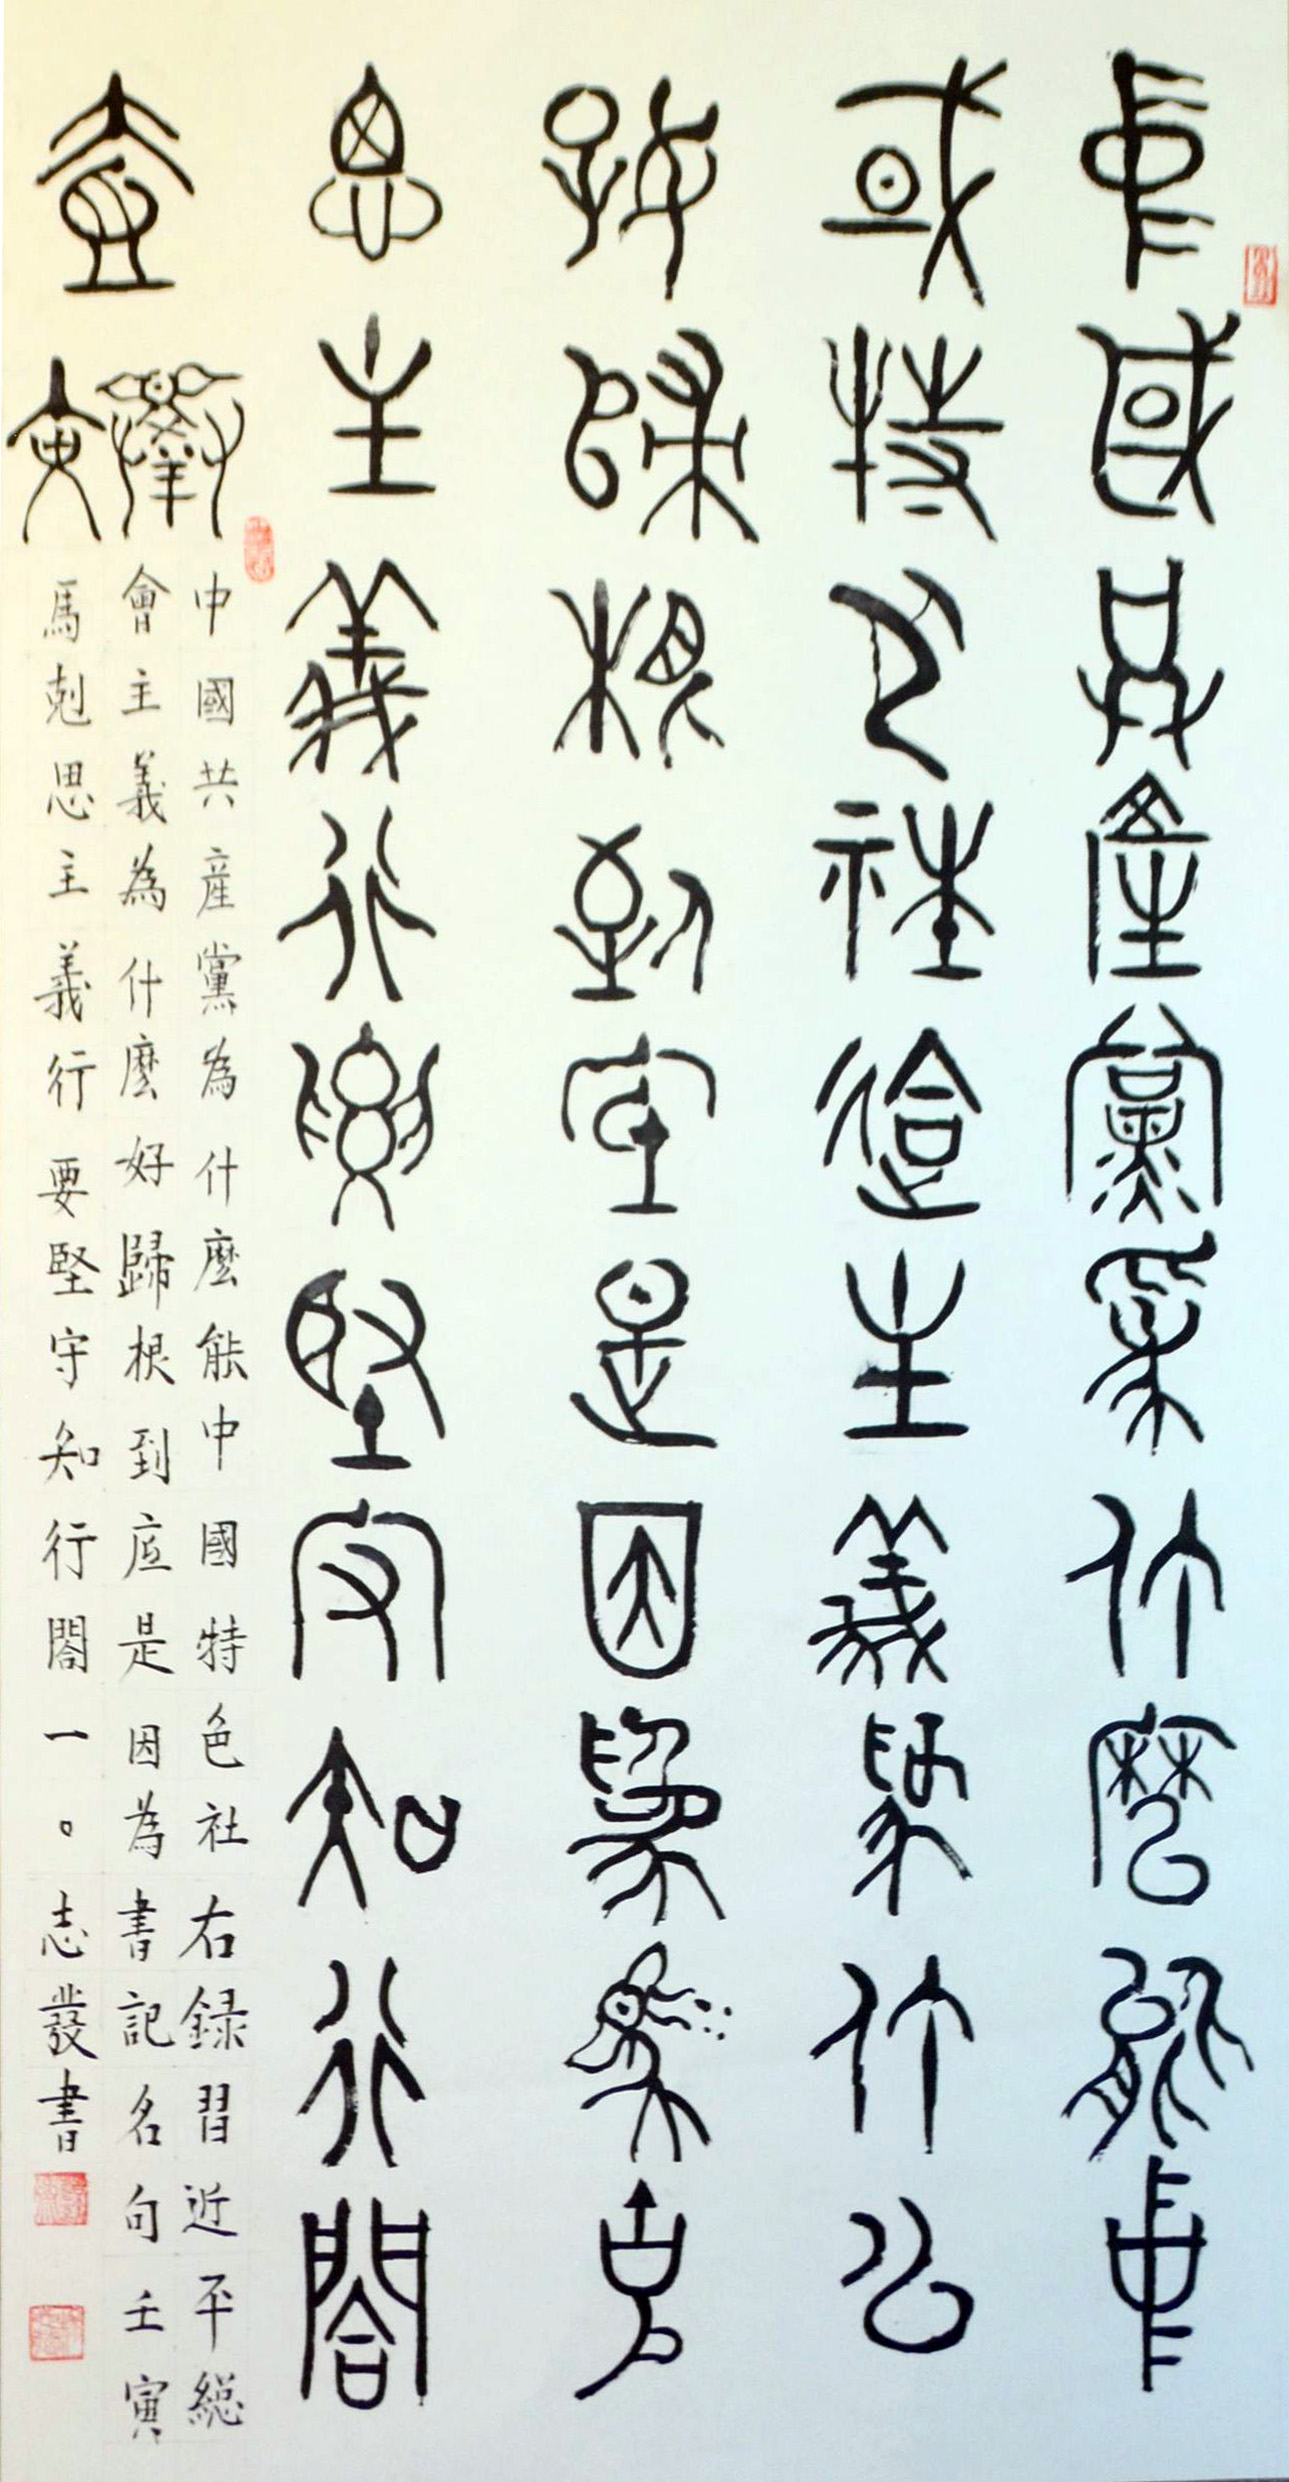 中國共產黨為什麼能中
或特色社會主義為什么
好歸根到底是因為馬克
思主義行要堅守知行閤
壹
釋文
中國共産黨為什麼能中國特色社右録習近平総
會主義為什麼好歸根到底是因為書記名句壬寅
馬剋思主義行要堅守知行閤一。志發書